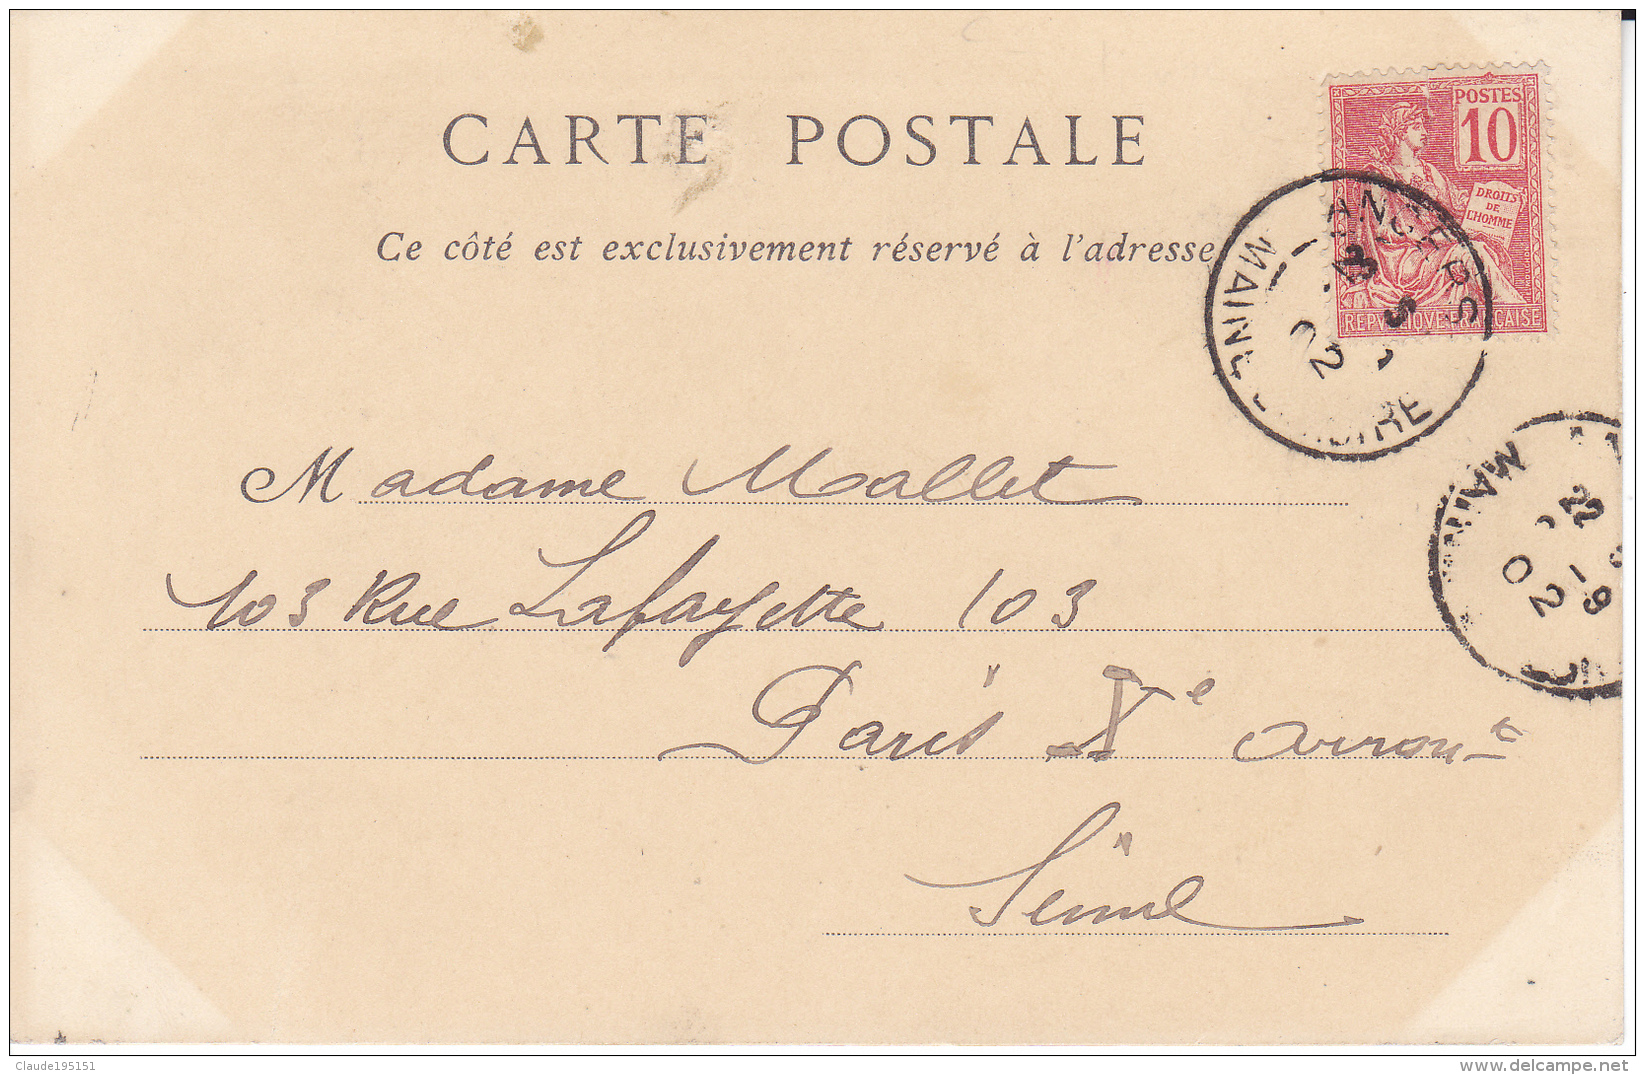 CARTE POSTALE
POSTES
10
DROITS
DE
L'HOMME
REPVBLIQVE FRANÇAISE
Ce côté est exclusivement réservé à l'adresse
ANGERS
MAINE ET LOIRE
02
Madame Mallet
103 Rue Lafayette 103
Paris Xe arront
Seine
22
02
Claude195151
www.delcampe.net